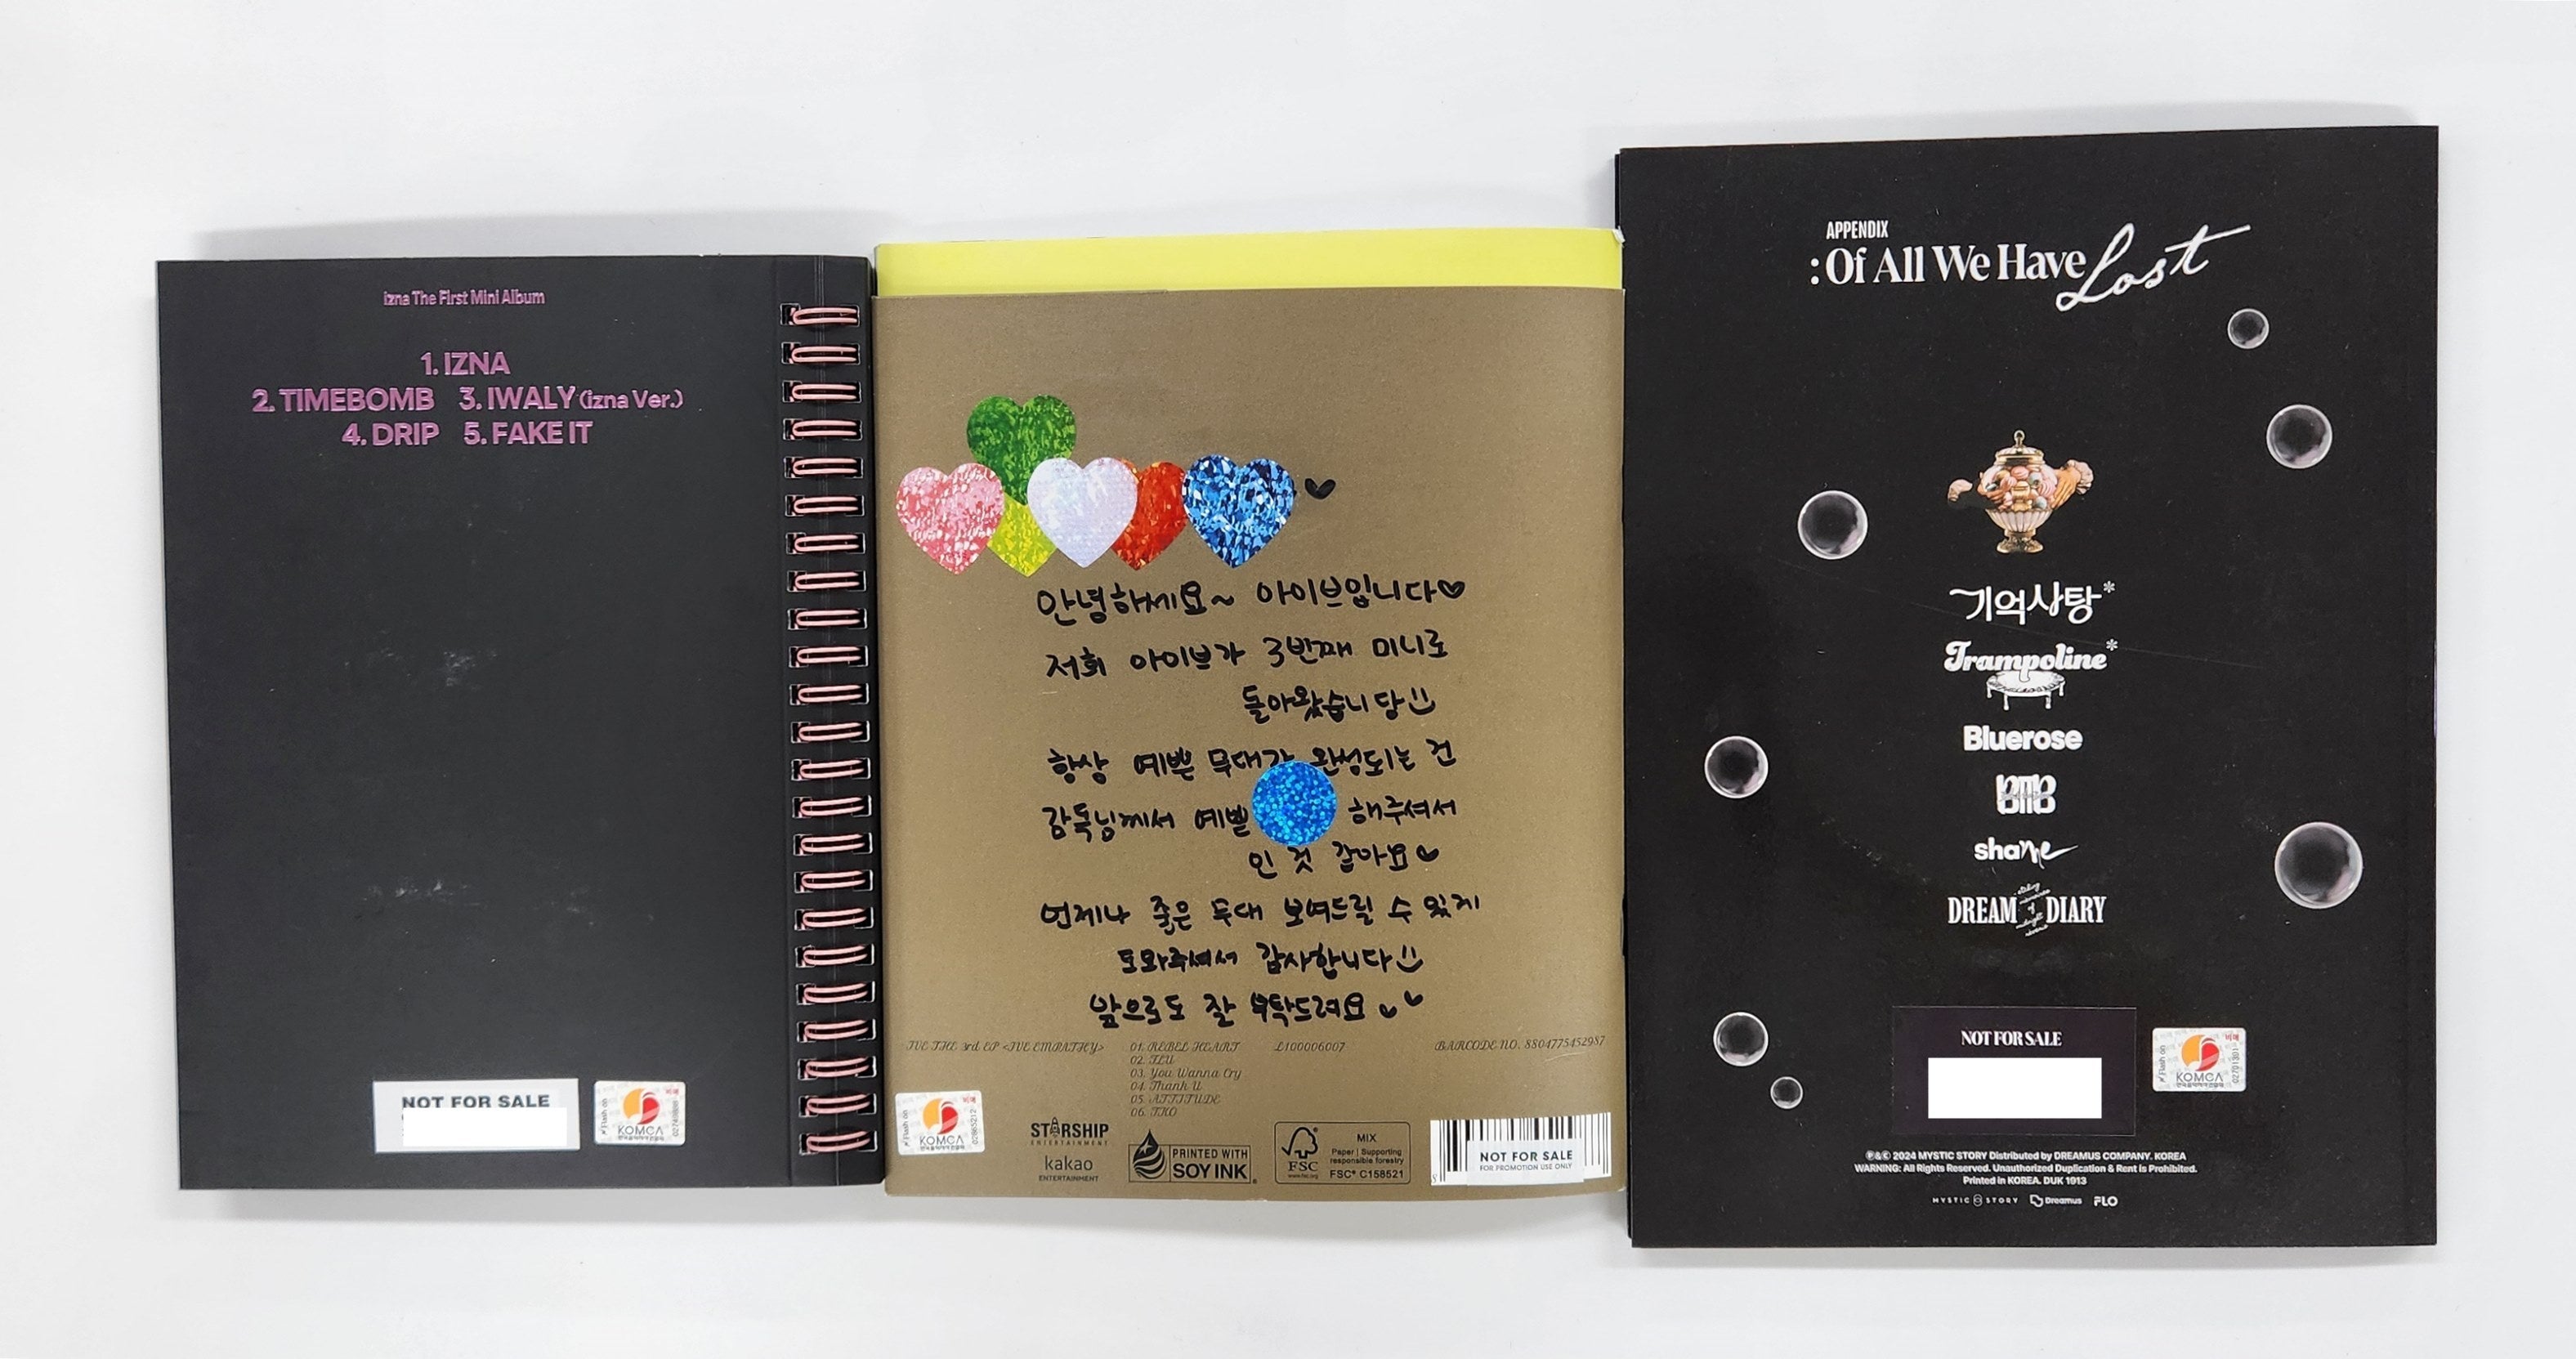 izna The First Mini Album
1. IZNA
2. TIMEBOMB 3. IWALY (izna Ver.)
4. DRIP 5. FAKE IT
NOT FOR SALE
Flash on
비매
KOMCA
한국음악저작권협회
안녕하세요~ 아이브입니다♡
저희 아이브가 3번째 미니로
돌아왔습니당
항상 예쁜 무대가 완성되는 건
감독님께서 예쁘 해주셔서
인 것 같아요
언제나 좋은 무대 보여드릴 수 있게
도와주셔서 감사합니다
앞으로도 잘 부탁드려요
IVE THE 3rd EP <IVE EMPATHY>
01. REBEL HEART
02. FLU
03. You Wanna Cry
04. Thank U
05. ATTITUDE
06. TKO
L100006007
BARCODE NO. 8804775452987
Flash on
비매
KOMCA
한국음악저작권협회
02865212
STARSHIP
ENTERTAINMENT
kakao
ENTERTAINMENT
PRINTED WITH
SOY INK
FSC
www.fsc.org
MIX
Paper | Supporting
responsible forestry
FSC® C158521
NOT FOR SALE
FOR PROMOTION USE ONLY
APPENDIX
: Of All We Have Lost
기억사탕*
Trampoline*
Bluerose
BTTB
shame
DREAM DIARY
NOT FOR SALE
Flash on
비매
KOMCA
한국음악저작권협회
02701301
℗&© 2024 MYSTIC STORY Distributed by DREAMUS COMPANY. KOREA
WARNING: All Rights Reserved. Unauthorized Duplication & Rent is Prohibited.
Printed in KOREA. DUK 1913
MYSTIC STORY Dreamus FLO